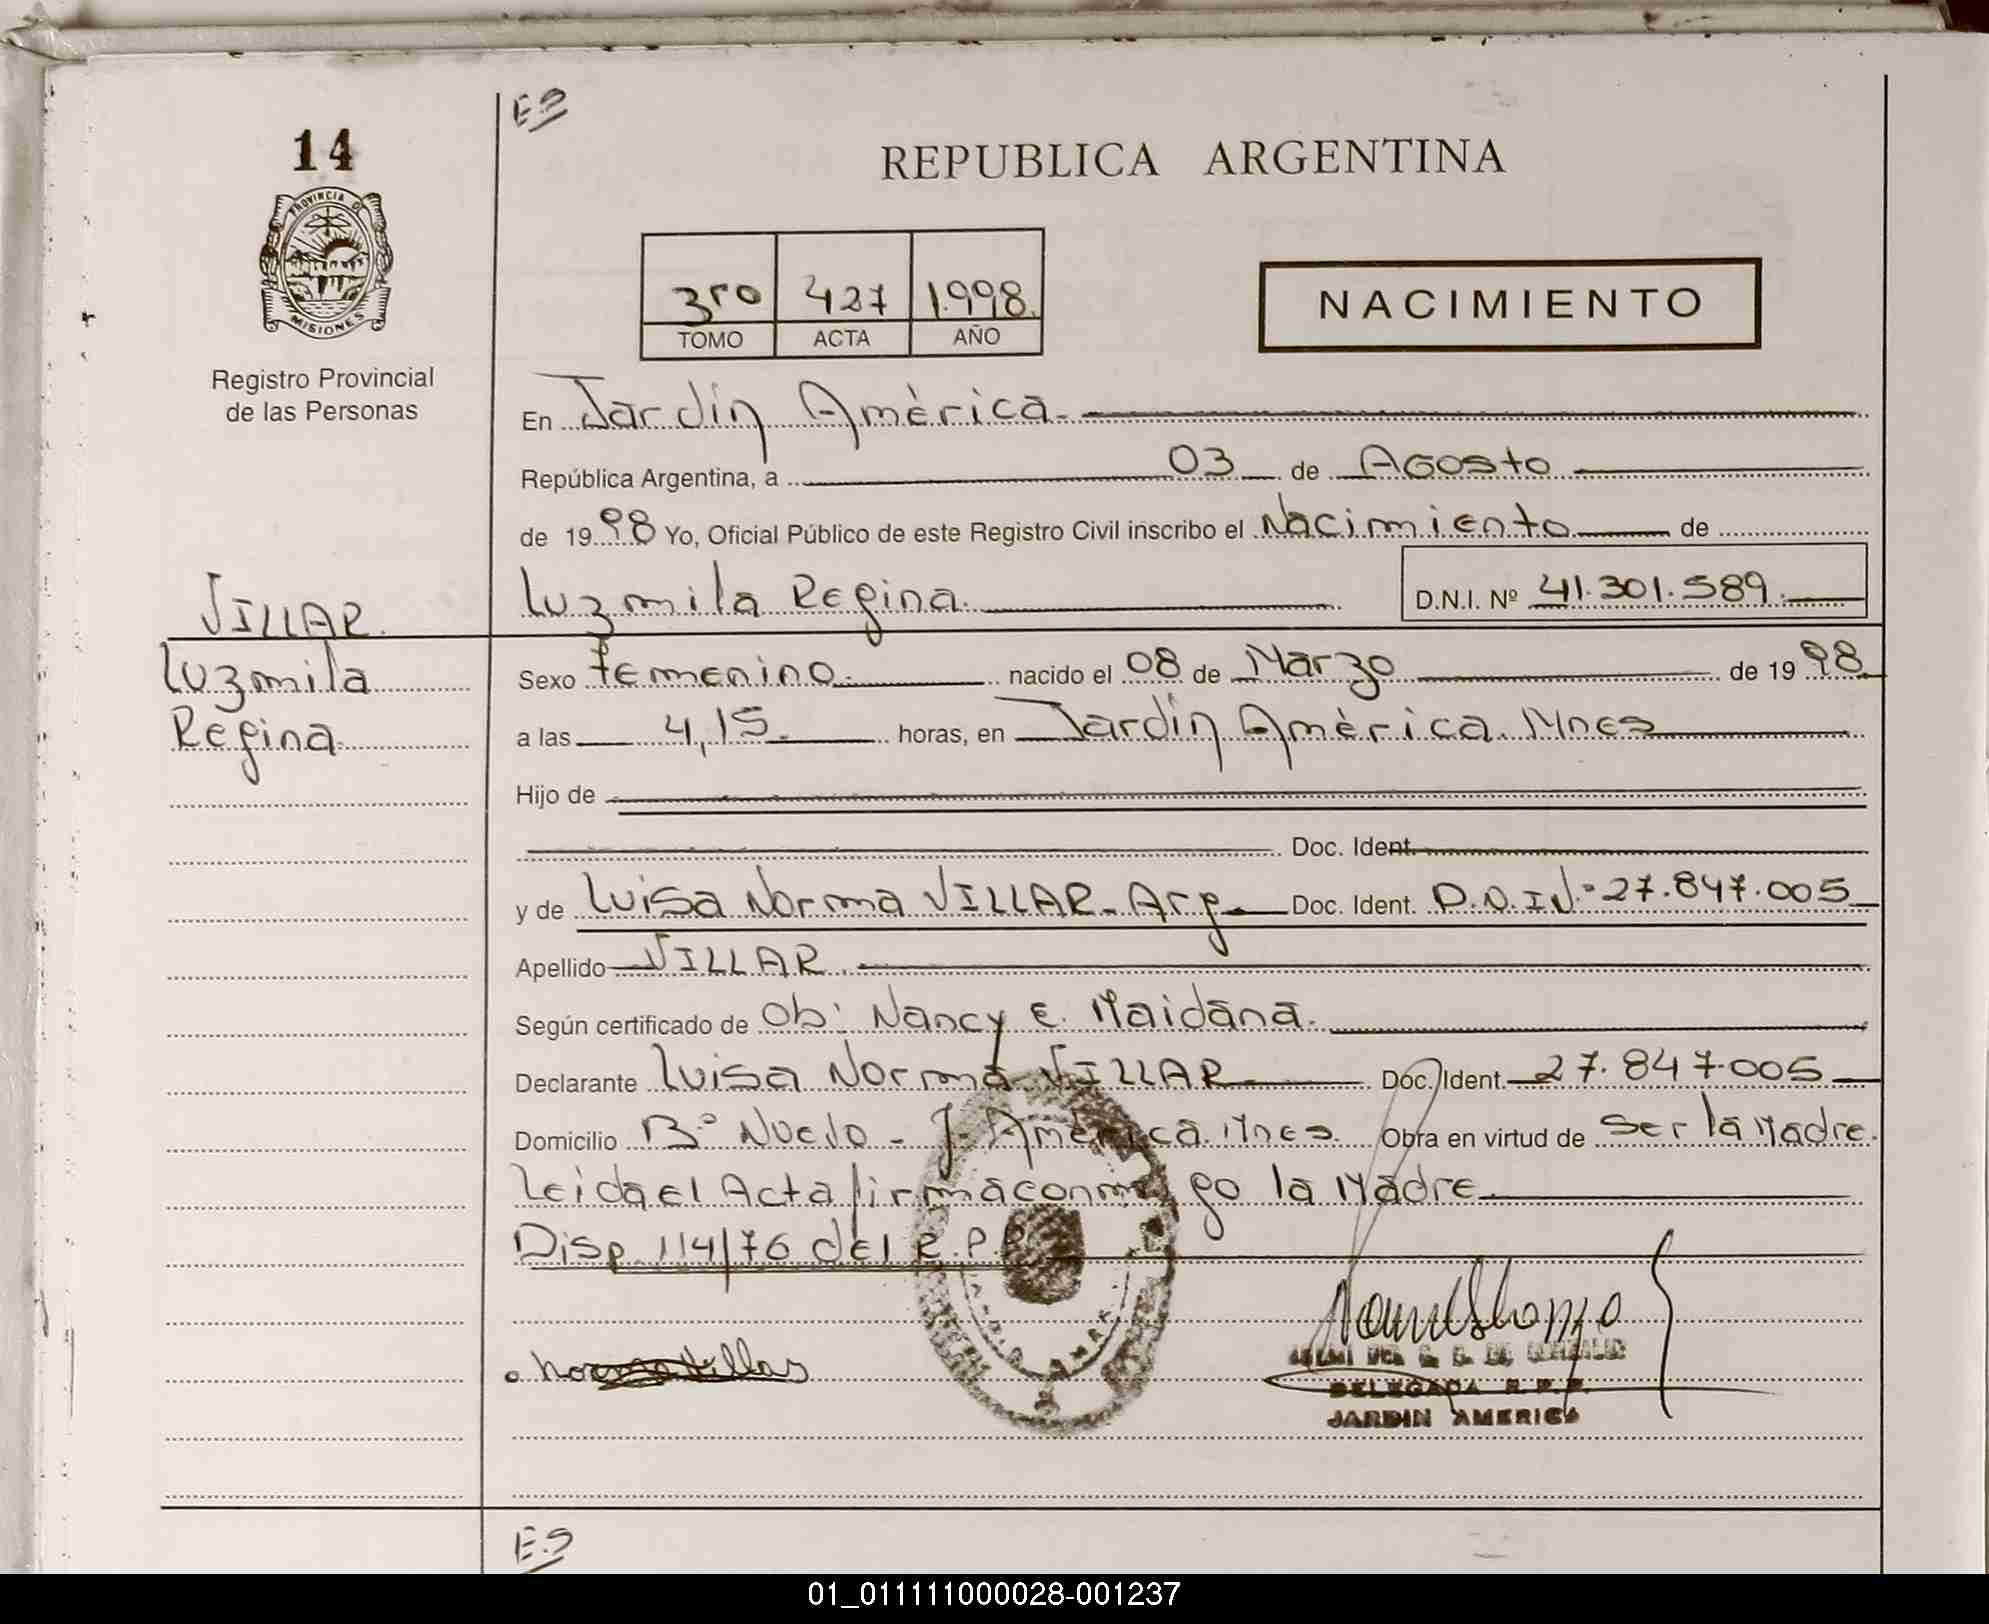 14
PROVINCIA D
MISIONES
Registro Provincial
de las Personas
REPUBLICA ARGENTINA
3ro 427 1.998.
TOMO ACTA AÑO
NACIMIENTO
En Jardín Amèrica.
República Argentina, a 03 de Agosto
de 19 98 Yo, Oficial Público de este Registro Civil inscribo el Nacimiento de
Luzmila Regina. D.N.I. Nº 41.301.589.
VILLAR.
Luzmila
Regina.
Sexo femenino. nacido el 08 de Marzo de 19 98
a las 4,15. horas, en Jardín Amèrica. Mnes
Hijo de
Doc. Ident.
y de Luisa Norma VILLAR- Arg. Doc. Ident. D.N.I N.º 27.847.005
Apellido VILLAR.
Según certificado de Ob: Nancy E. Maidana.
Declarante Luisa Norma VILLAR Doc. Ident. 27.847.005
Domicilio Bº Nuevo - J. América. Mnes. Obra en virtud de Ser la Madre.
Leida el Acta firma conmigo la Madre.
Disp. 114/76 del R.P.P
DELEGADA R.P.P.
JARDIN AMERICA
01_011111000028-001237